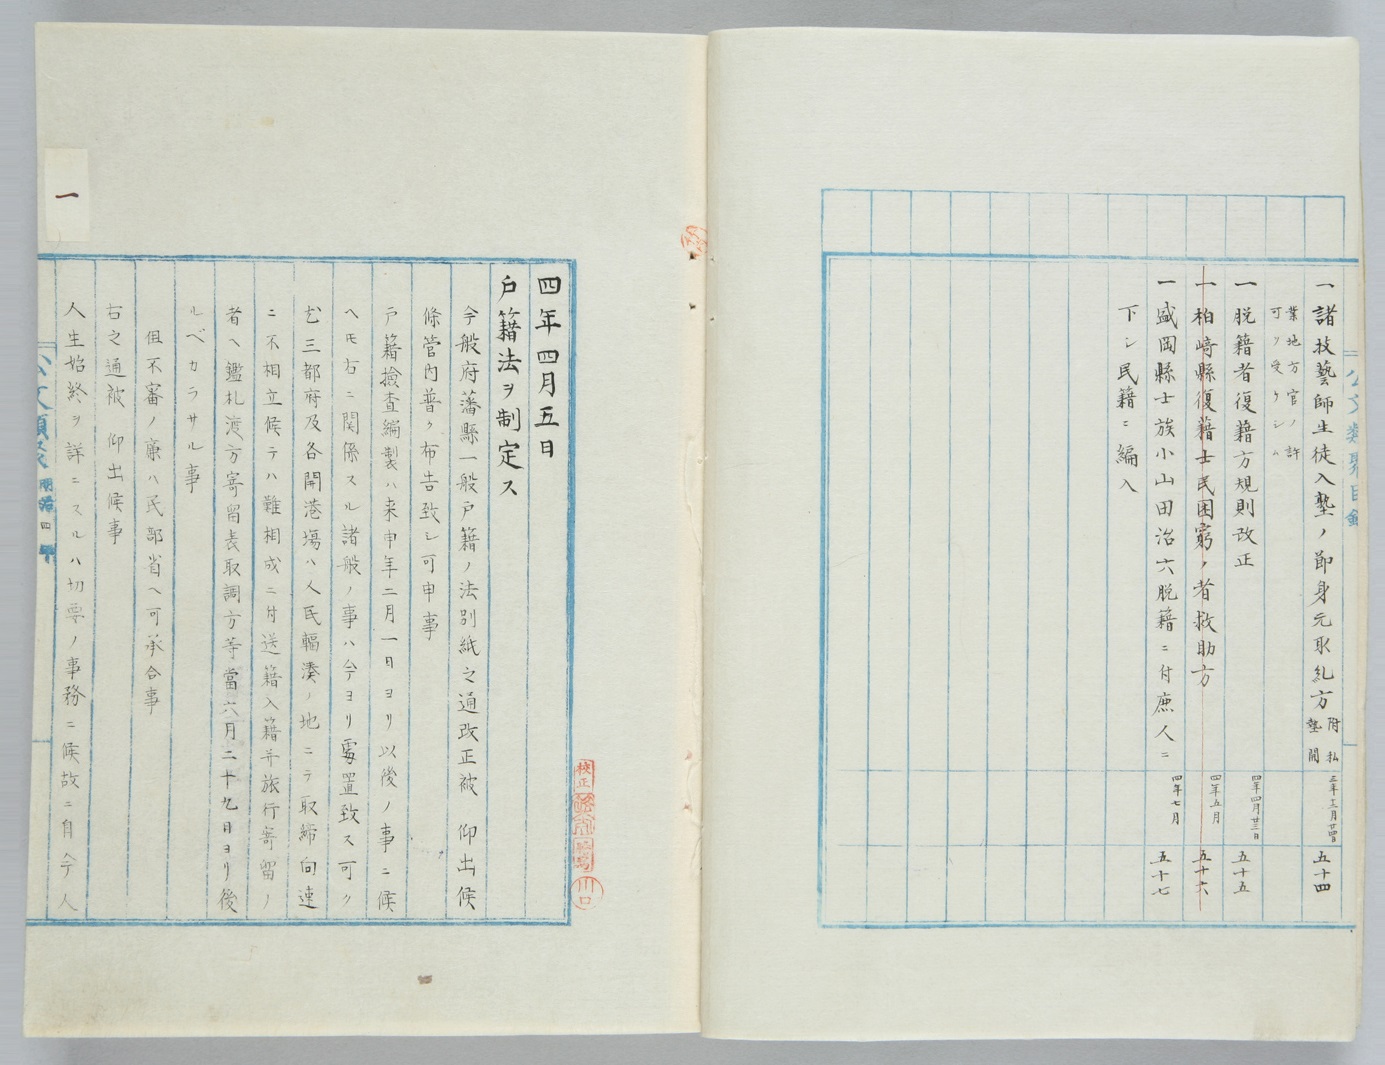 一諸技藝師生徒入塾ノ節身元取糺方 附私塾開
業地方官ノ許可ヲ受ケシム
三年十二月廿四日
五十四
一脱籍者復籍方規則改正
四年四月廿三日
五十五
一柏﨑縣復籍士民困窮ノ者救助方
四年五月
五十六
一盛岡縣士族小山田治六脱籍ニ付庶人ニ
下シ民籍ニ編入
四年七月
五十七
公文類聚目録
四年四月五日
戸籍法ヲ制定ス
今般府藩縣一般戸籍ノ法別紙之通改正被 仰出候
條管内普ク布告致シ可申事
戸籍撿査編製ハ来申年二月一日ヨリ以後ノ事ニ候
ヘ𪜈右ニ関係スル諸般ノ事ハ今ヨリ處置致ス可ク
尤三都府及各開港塲ハ人民輻湊ノ地ニテ取締向速
ニ不相立候テハ難相成ニ付送籍入籍并旅行寄留ノ
者ヘ鑑札渡方寄留表取調方等當六月二十九日ヨリ後
ルベカラサル事
但不審ノ廉ハ民部省ヘ可承合事
右之通被 仰出候事
人生始終ヲ詳ニスルハ切要ノ事務ニ候故ニ自今人
一
校正
川口